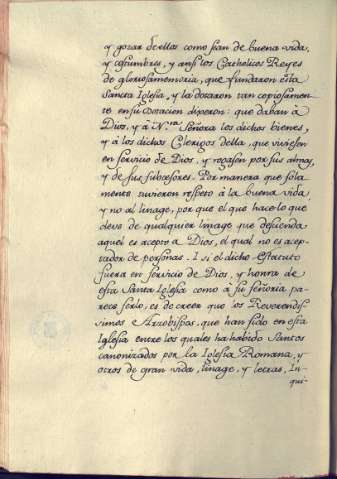 y gozar de ellas como sian de buena vida,
y costumbres, y ansi los Catholicos Reyes
de gloriosa memoria, que fundaron esta
Sancta Iglesia, y la dotaron tan copiosamen-
te en su Dotacion dixeron: que daban à
Dios, y à N.ra Señora los dichos bienes,
y à los dichos Clerigos della, que viviesen
en servicio de Dios, y rogasen por sus almas,
y de sus subcesores. Por manera que sola-
mente tuvieron respeto à la buena vida,
y no al linage, por que el que hace lo que
deve de qualquier linage que descienda
aquel es acepto à Dios, el qual no es acep-
tador de personas. I si el dicho Estatuto
fuera en servicio de Dios, y honrra de
esta Santa Iglesia como à su Señoria pa-
rece serlo, es de creer que los Reverendis-
simos Arzobispos, que han sido en esta
Iglesia entre los quales ha habido Santos
canonizados por la Iglesia Romana, y
otros de gran vida, linage, y letras, In-
qui-